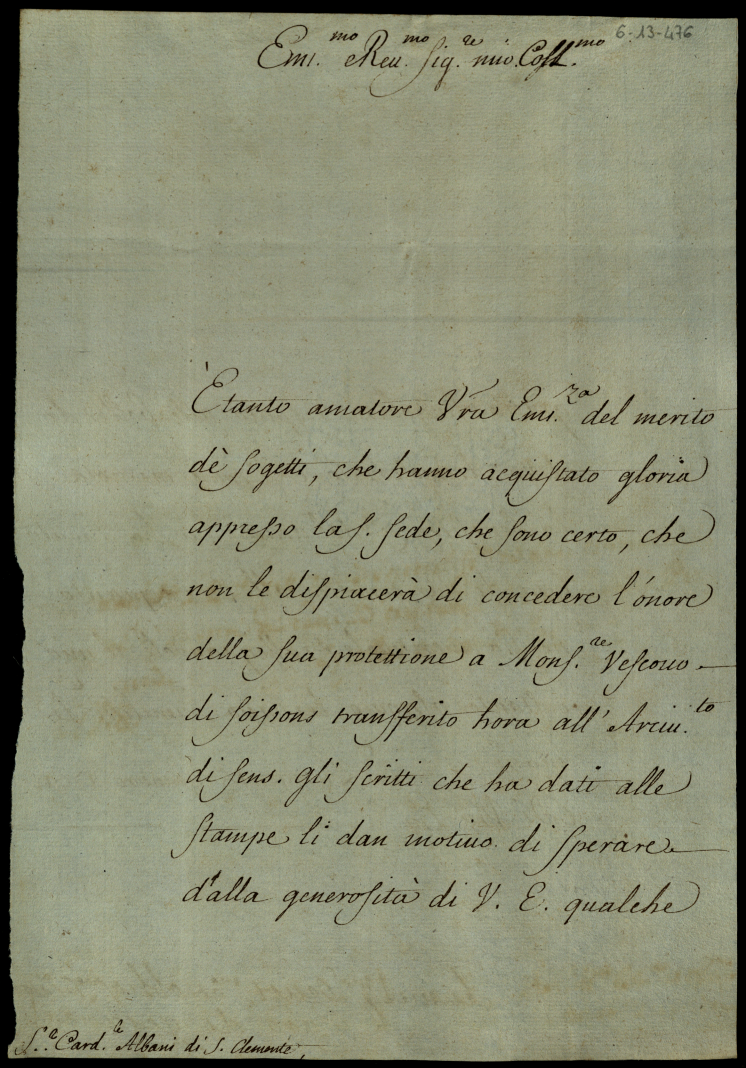 6-13-476
Emi.mo e Reu.mo Sig.re mio Coll.mo
È tanto amatore Vrã Emi.za del merito
dè sogetti, che hanno acquistato gloria
appresso la S. sede, che sono certo, che
non le dispiacerà di concedere l'ónore
della sua protettione a Mons.re Vescouo
di soissons transferito hora all' Arciu.to
di sens. gli scritti che ha dati alle
stampe li dan motiuo di sperare
dalla generosità di V. E. qualche
S.r Card.le Albani di S. Clemente,